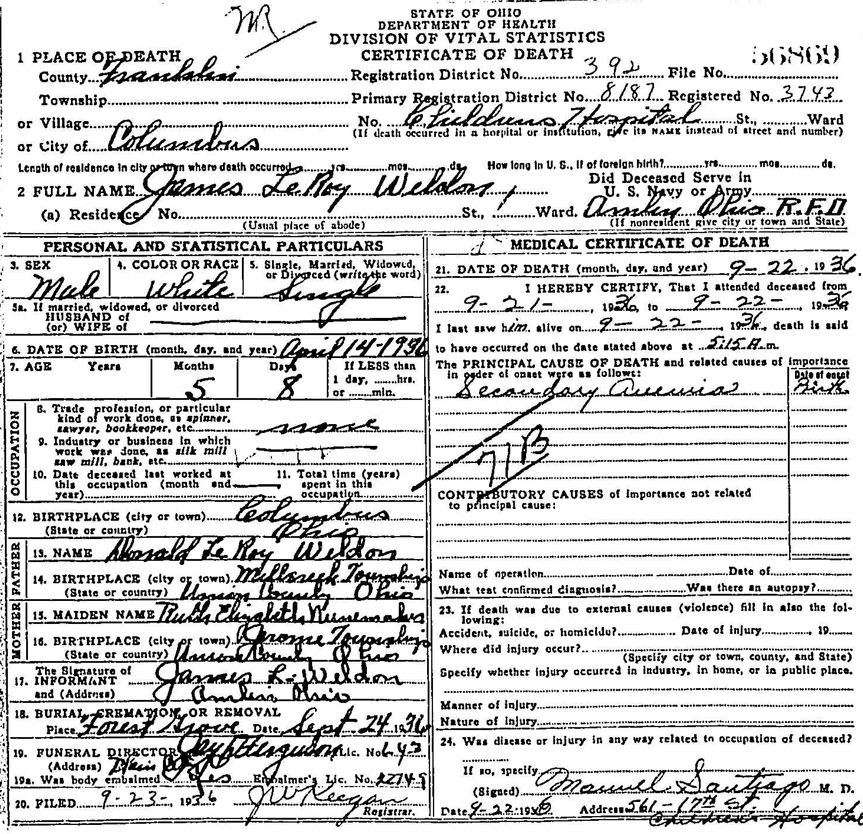 STATE OF OHIO
DEPARTMENT OF HEALTH
DIVISION OF VITAL STATISTICS
CERTIFICATE OF DEATH
56869
1 PLACE OF DEATH
County Franklin Registration District No. 392 File No.
Township Primary Registration District No. 8187 Registered No. 3743
or Village No. Childrens Hospital St., Ward
or City of Columbus (If death occurred in a hospital or institution, give its NAME instead of street and number)
Length of residence in city or town where death occurred yrs. mos. ds. How long in U. S., if of foreign birth? yrs. mos. ds.
2 FULL NAME James LeRoy Weldon, Did Deceased Serve in U. S. Navy or Army
(a) Residence No. St., Ward. Amlin Ohio R.F.D
(Usual place of abode) (If nonresident give city or town and State)
PERSONAL AND STATISTICAL PARTICULARS
3. SEX 4. COLOR OR RACE 5. Single, Married, Widowed, or Divorced (write the word)
Male White Single
5a. If married, widowed, or divorced
HUSBAND of
(or) WIFE of
6. DATE OF BIRTH (month, day, and year) April 14-1936
7. AGE Years Months Days If LESS than
1 day, hrs.
or min.
5 8
OCCUPATION
8. Trade, profession, or particular
kind of work done, as spinner,
sawyer, bookkeeper, etc. none
9. Industry or business in which
work was done, as silk mill
saw mill, bank, etc.
10. Date deceased last worked at this occupation (month and year) 11. Total time (years) spent in this occupation
12. BIRTHPLACE (city or town) Columbus
(State or country) Ohio
FATHER
13. NAME Donald Le Roy Weldon
14. BIRTHPLACE (city or town) Millcreek Township
(State or country) Union County Ohio
MOTHER
15. MAIDEN NAME Ruth Elizabeth Nunemaker
16. BIRTHPLACE (city or town) Jerome Township
(State or country) Union County Ohio
17. The Signature of
INFORMANT James L. Weldon
and (Address) Amlin Ohio
18. BURIAL, CREMATION, OR REMOVAL
Place Forest Grove Date Sept 24 1936
19. FUNERAL DIRECTOR Ferguson Lic No. 643
(Address)
19a. Was body embalmed Yes Embalmer's Lic. No.
20. FILED 9-23-1936 JW Keegan
Registrar.
MEDICAL CERTIFICATE OF DEATH
21. DATE OF DEATH (month, day, and year) 9-22. 1936
22. I HEREBY CERTIFY, That I attended deceased from
9-21-, 1936, to 9-22-, 1936
I last saw him alive on 9-22-, 1936, death is said
to have occurred on the date stated above at 5:15 A.m.
The PRINCIPAL CAUSE OF DEATH and related causes of importance
in order of onset were as follows: Date of onset
Secondary Anemia Birth
71B
CONTRIBUTORY CAUSES of importance not related
to principal cause:
Name of operation Date of
What test confirmed diagnosis? Was there an autopsy?
23. If death was due to external causes (violence) fill in also the following:
Accident, suicide, or homicide? Date of injury 19
Where did injury occur?
(Specify city or town, county, and State)
Specify whether injury occurred in industry, in home, or in public place.
Manner of injury
Nature of injury
24. Was disease or injury in any way related to occupation of deceased?
If so, specify
(Signed) Manuel Santiago M. D.
Date 9-22 1936 Address 561-17th St
Children's Hospital